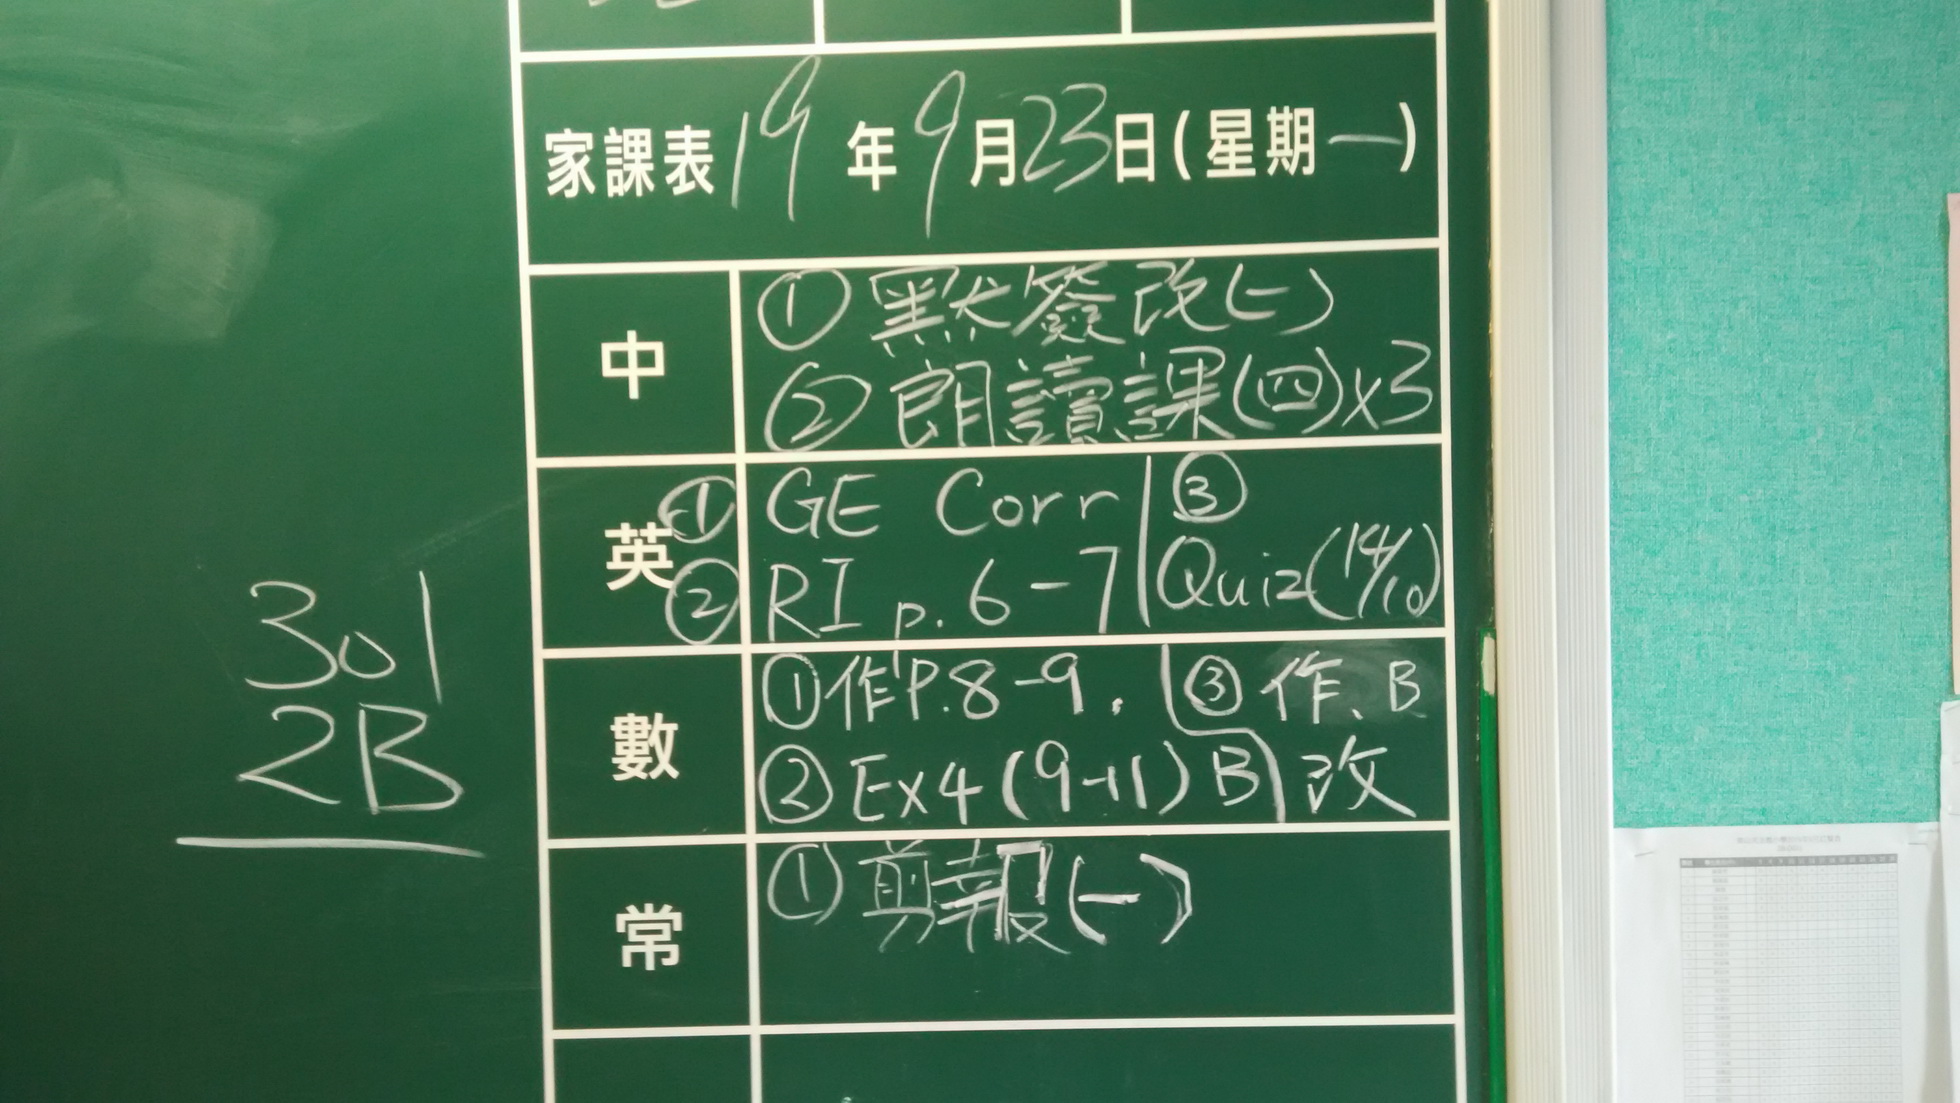 家課表19年9月23日(星期一)
中
①默簽改(二)
②朗讀課(四)x3
英
①GE Corr
②RI p.6-7
③
Quiz(14/10)
數
①作P.8-9.
②Ex4(9-11)B
③作、B
改
常
①剪報(一)
301
2B